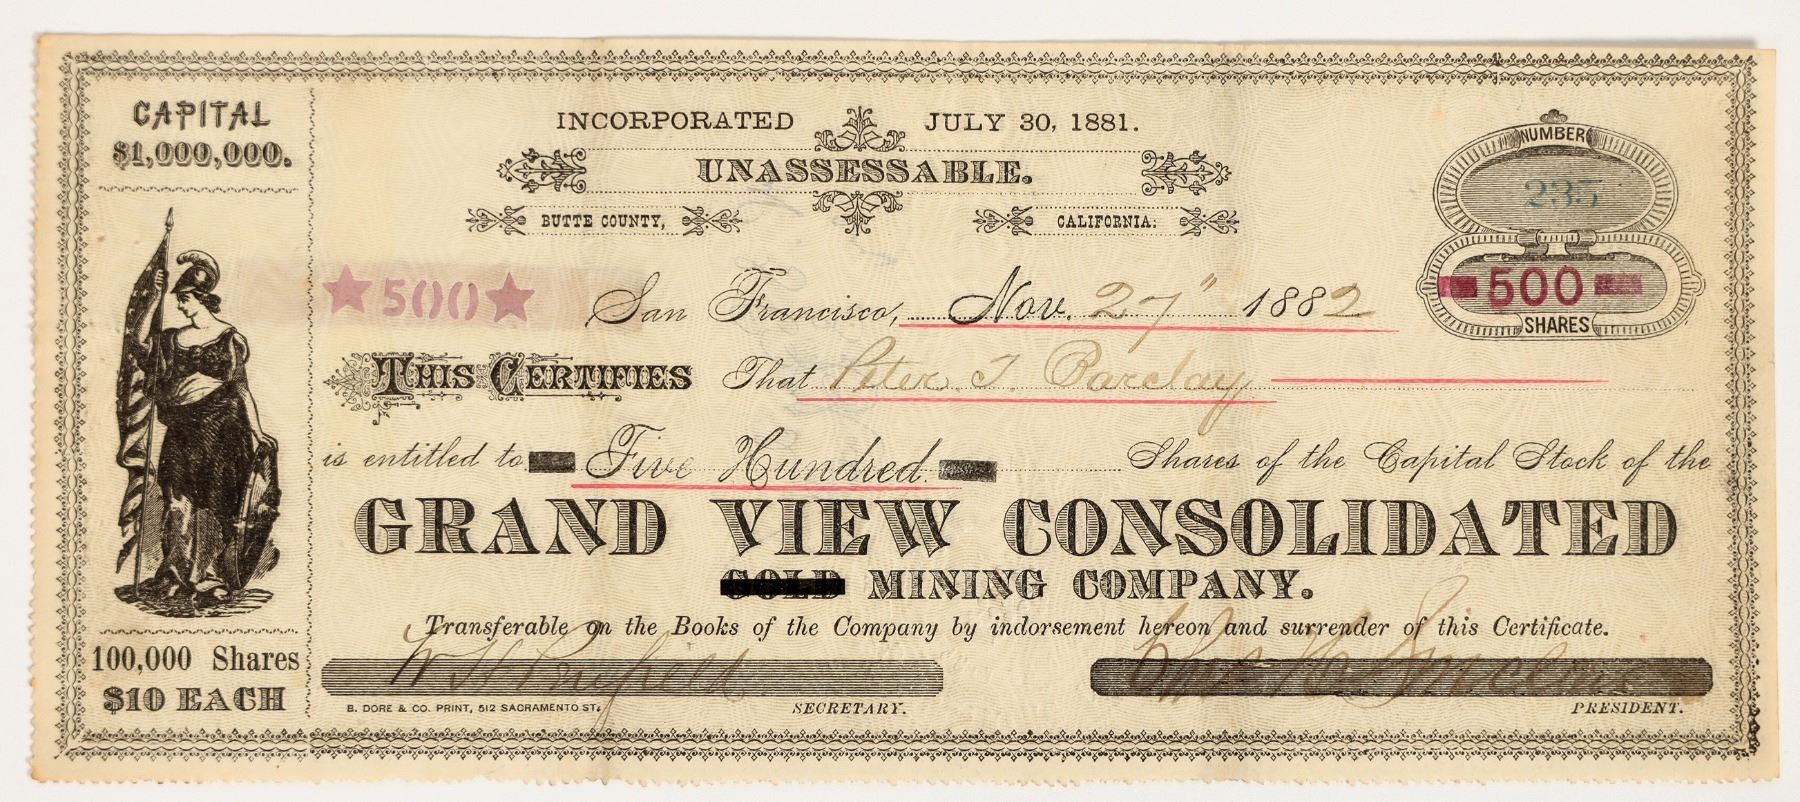 CAPITAL
$1,000,000.
INCORPORATED JULY 30, 1881.
UNASSESSABLE.
BUTTE COUNTY, CALIFORNIA.
NUMBER
235
★500★
San Francisco, Nov. 27" 1882
500
SHARES
THIS CERTIFIES That Peter T. Barclay
is entitled to Five Hundred. Shares of the Capital Stock of the
GRAND VIEW CONSOLIDATED
GOLD MINING COMPANY.
Transferable on the Books of the Company by indorsement hereon and surrender of this Certificate.
100,000 Shares
$10 EACH
B. DORE & CO. PRINT, 512 SACRAMENTO ST.
SECRETARY.
PRESIDENT.